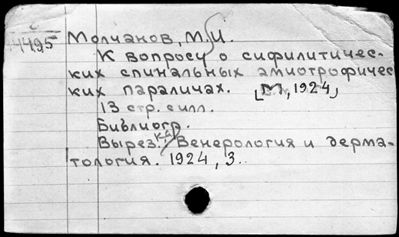 14495
Молчанов, М.И.
К вопросу о сифилитичес-
ких спинальных амиотрофичес
ких параличах. [М, 1924]
13 стр. илл.
Библиогр.
Вырез.: Венерология и дерма-
тология. 1924, 3.